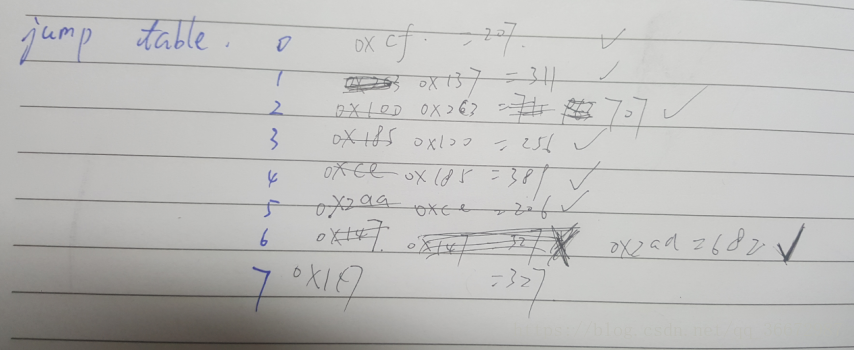 jump table. 0 0xcf. =207. ✓
1 0x263 0x137 =311 ✓
2 0x100 0x263 = 707 ✓
3 0x185 0x100 =256 ✓
4 0xce 0x185 =389 ✓
5 0x2aa 0xce =206 ✓
6 0x147. 0x147 327 X 0x2aa =682 ✓
7 0x147 =327